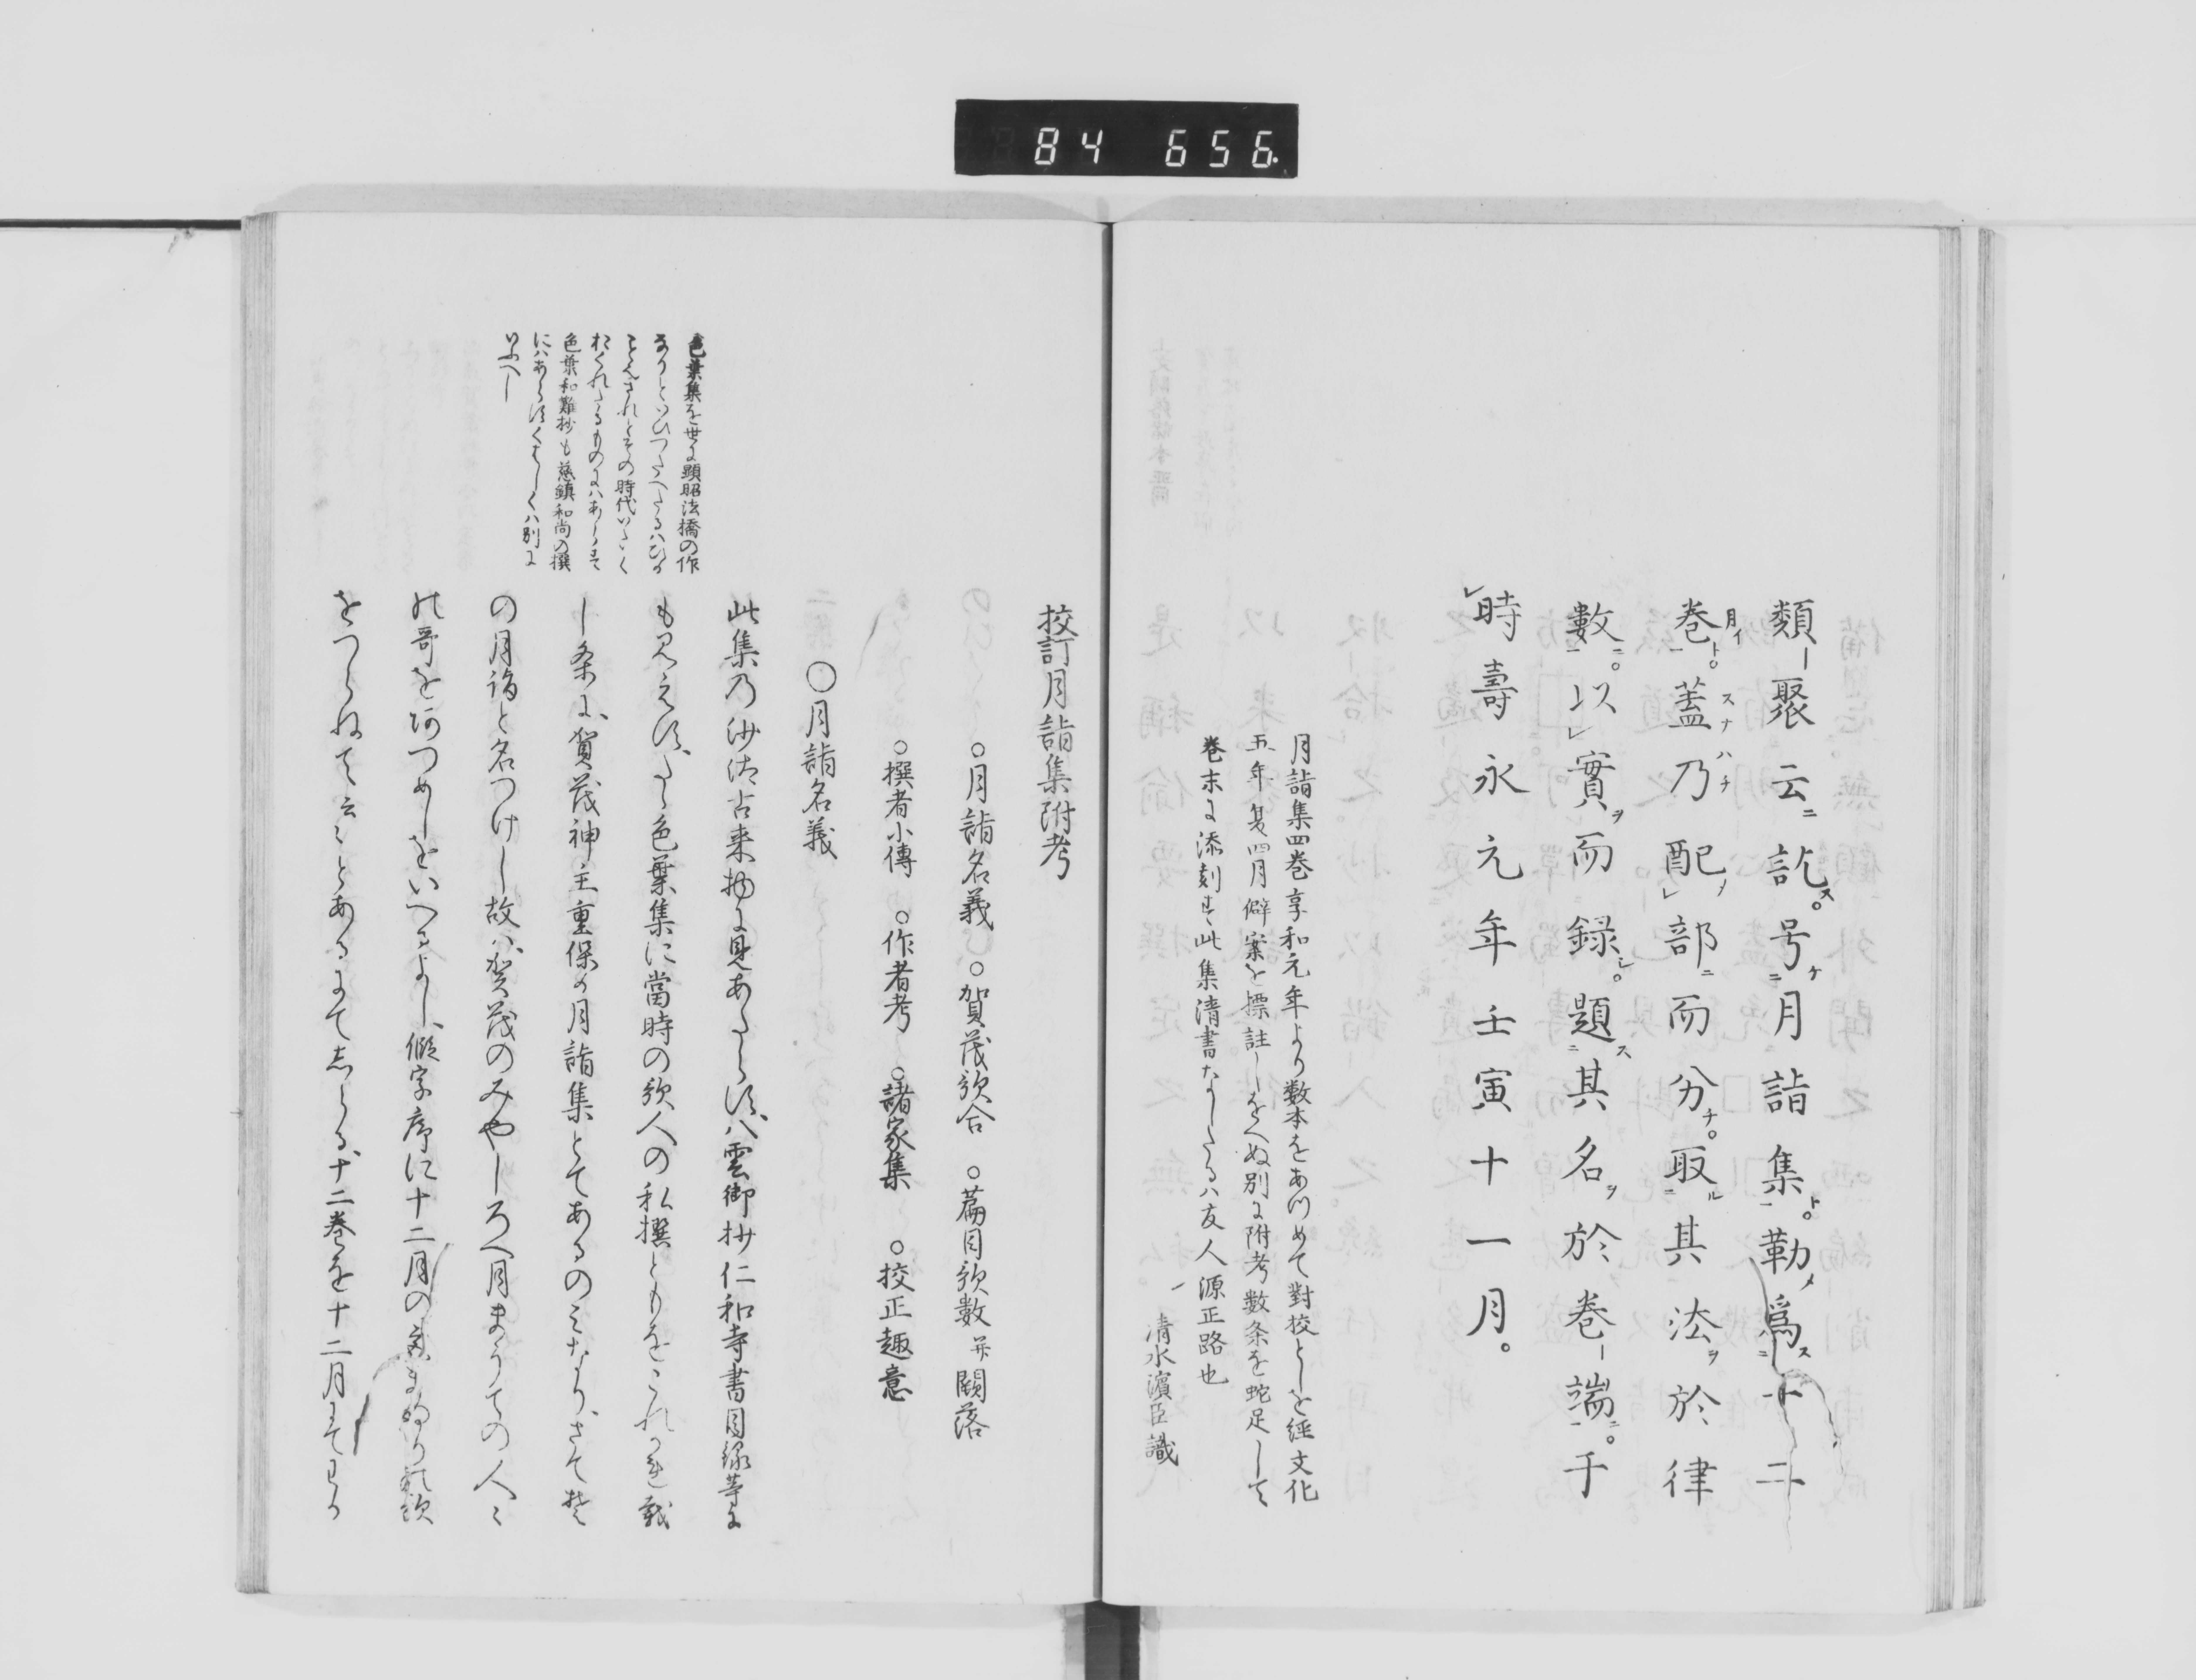 84 656.
類聚云訖号月詣集勒爲十二
巻蓋乃配部而分取其法於律
數以實而録題其名於巻端于
時壽永元年壬寅十一月
月詣集四巻享和元年より数本をあつめて對校としを経文化
五年夏四月僻案を標註しをへぬ別に附考数条を蛇足して
巻末に添刻す此集清書なしたるハ友人源正路也
清水濱臣識
挍訂月詣集附考
○月詣名義 ○賀茂歌合 ○篇目歌数并闕落
○撰者小傳 ○作者考 ○諸家集 ○挍正趣意
○月詣名義
此集乃沙汰古来物に見あたらす八雲御抄仁和寺書目録等に
も見えすたゝ色葉集に當時の歌人の私撰ともをこれかれ載
し条に賀茂神主重保の月詣集とてあるのミなりさて
の月詣と名つけし故ハ賀茂のみやしろへ月まうての人々
の哥をあつめしをいへるよし假字序に十二月の
をつらねて云々とあるにてしらる十二巻を十二月にてわか
色葉集を世に顕昭法橋の作
なりといひつたへたるハひか
ことなりされとその時代いたく
おくれたるものにハあらす
色葉和難抄も慈鎮和尚の撰
にハあらすくはしくハ別に
いふへし